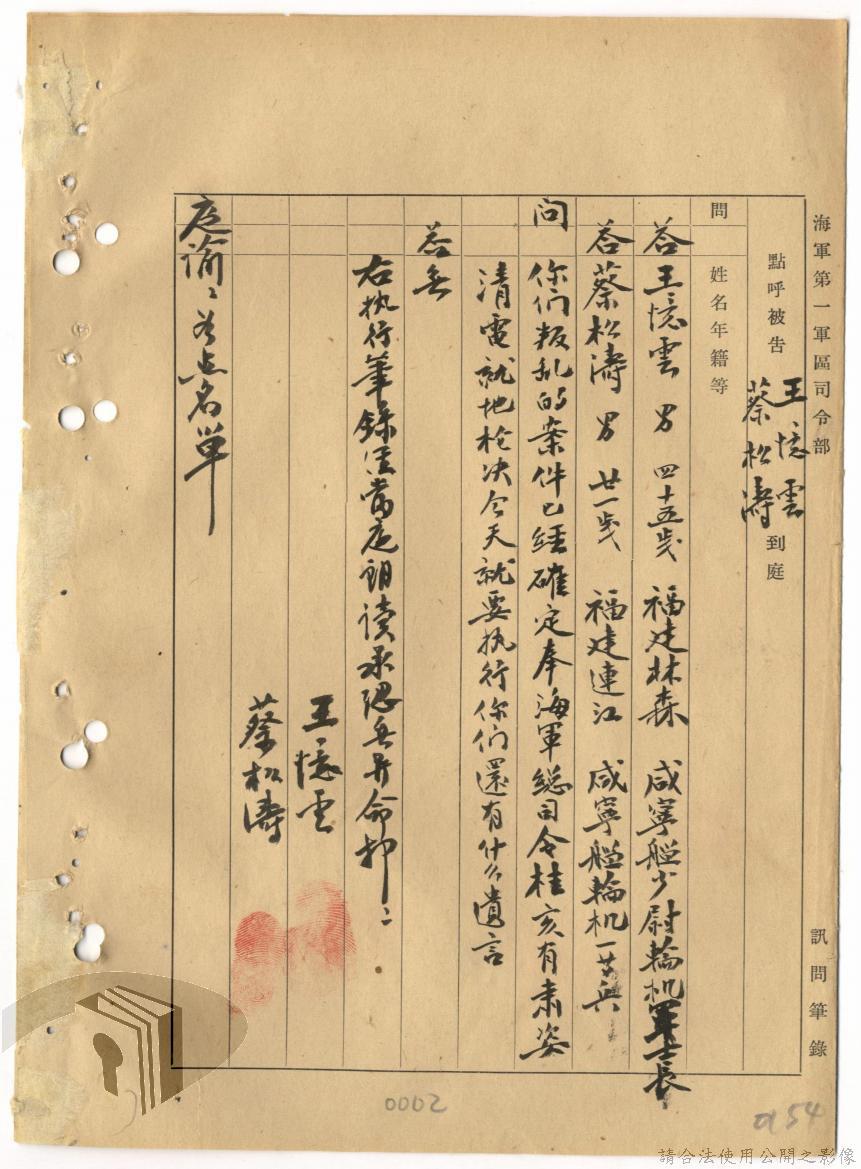 海軍第一軍區司令部　訊問筆錄
點呼被告　王憶雲　蔡松濤　到庭
問　姓名年籍等
答　王憶雲　男　四十五歲　福建林森　咸寧艦少尉輪机軍士長
答　蔡松濤　男　廿一歲　福建連江　咸寧艦輪机一等兵
問　你们叛乱的案件已經確定奉海軍總司令桂亥有肅姿
清電就地枪决今天就要执行你们還有什么遺言
答　無
右执行筆錄經當庭朗读承認無異命押
王憶雲
蔡松濤
庭諭　點名單
0002
a54
請合法使用公開之影像